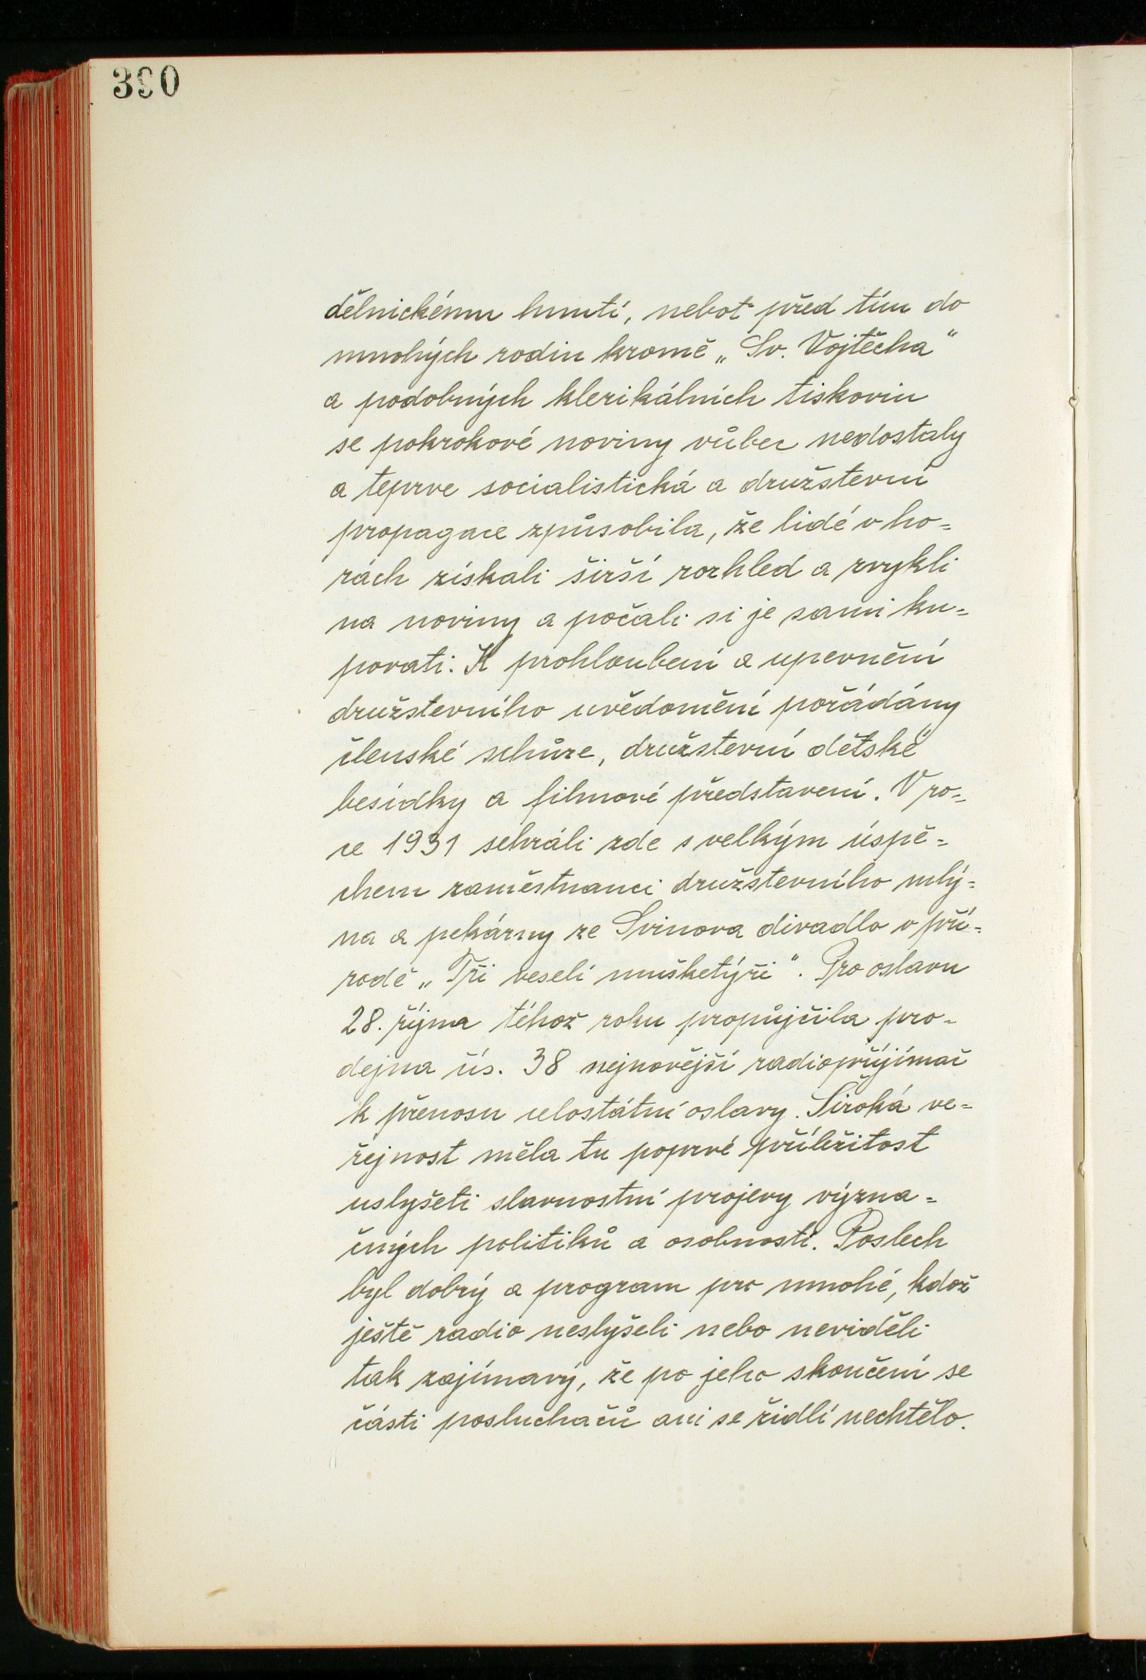 390
dělnickému hnutí, neboť před tím do
mnohých rodin kromě „Sv. Vojtěcha"
a podobných klerikálních tiskovin
se pokrokové noviny vůbec nedostaly
a teprve socialistická a družstevní
propagace způsobila, že lidé v ho=
rách získali širší rozhled a zvykli
na noviny a počali si je sami ku=
povati. K prohloubení a upevnění
družstevního uvědomění pořádány
členské schůze, družstevní dětské
besídky a filmové představení. V ro=
ce 1931 sehráli zde s velkým úspě=
chem zaměstnanci družstevního mlý=
na a pekárny ze Svinova divadlo v pří=
rodě „Tři veselí mušketýři". Pro oslavu
28. října téhož roku propůjčila pro=
dejna čís. 38 nejnovější radiopřijímač
k přenosu celostátní oslavy. Široká ve=
řejnost měla tu poprvé příležitost
uslyšeti slavnostní projevy význa=
čných politiků a osobností. Poslech
byl dobrý a program pro mnohé, kdož
ještě radio neslyšeli nebo neviděli
tak zajímavý, že po jeho skončení se
části posluchačů ani se židlí nechtělo.